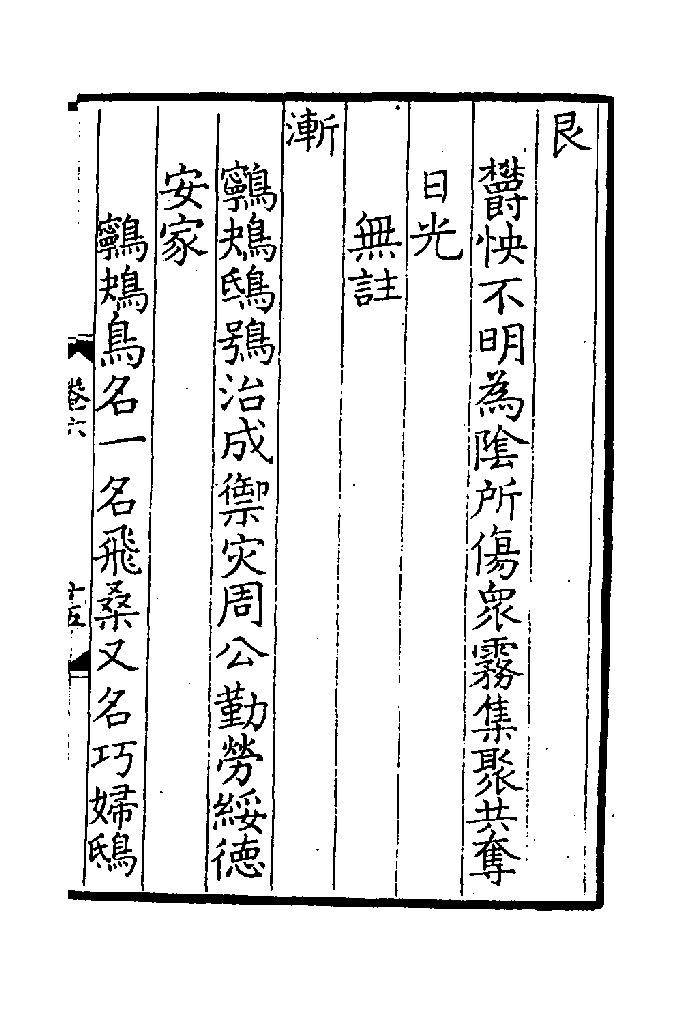 艮
鬱怏不明為隂所傷衆霧集聚共奪
日光
無註
漸
鸋鴂鴟鴞治成禦灾周公勤勞綏徳
安家
鸋鴂鳥名一名飛桑又名巧婦鴟
卷六
十五